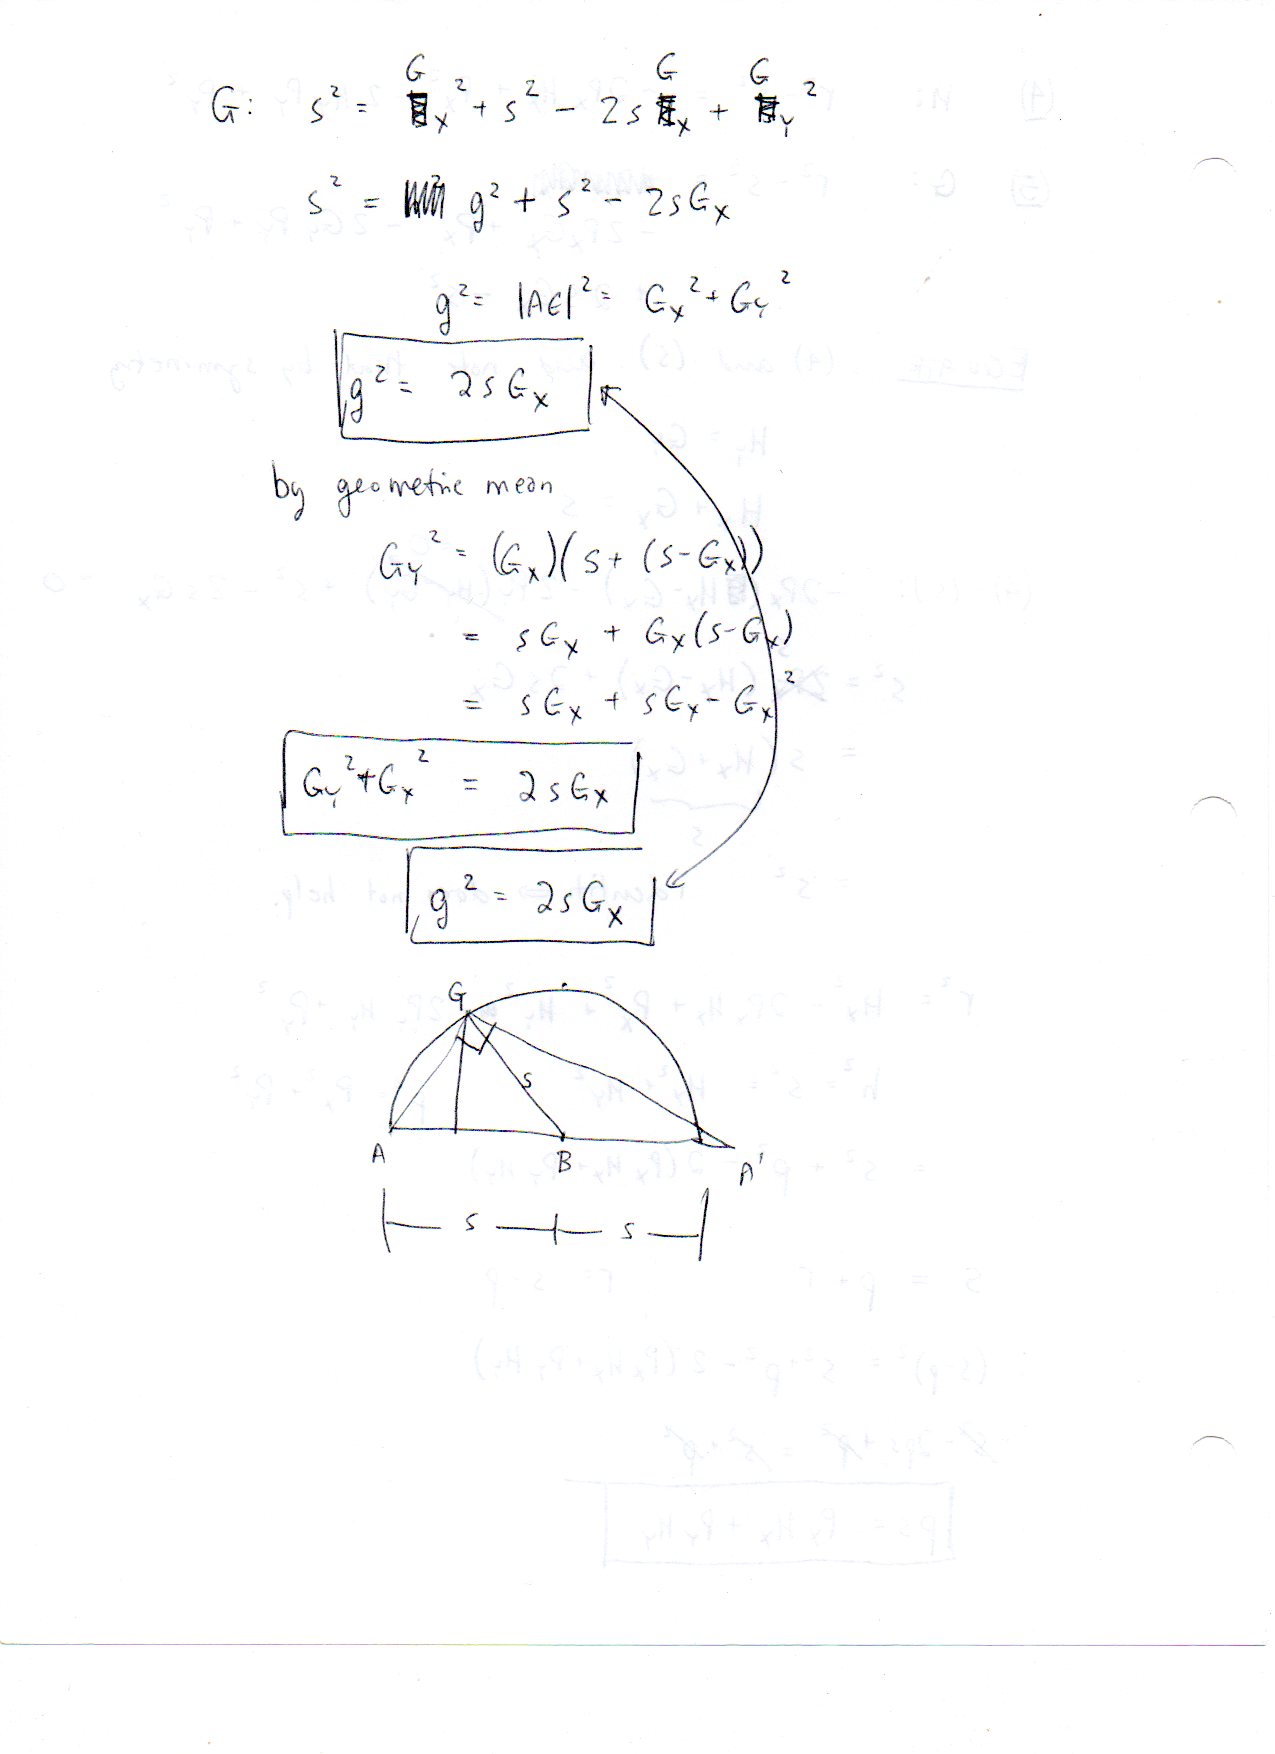 G: s² = G_x² + s² - 2sG_x + G_y²
s² = g² + s² - 2sG_x
g² = |AG|² = G_x² + G_y²
g² = 2sG_x
by geometric mean
G_y² = (G_x)(s + (s-G_x))
= sG_x + G_x(s-G_x)
= sG_x + sG_x - G_x²
G_y² + G_x² = 2sG_x
g² = 2sG_x
G
s
A B A'
s s